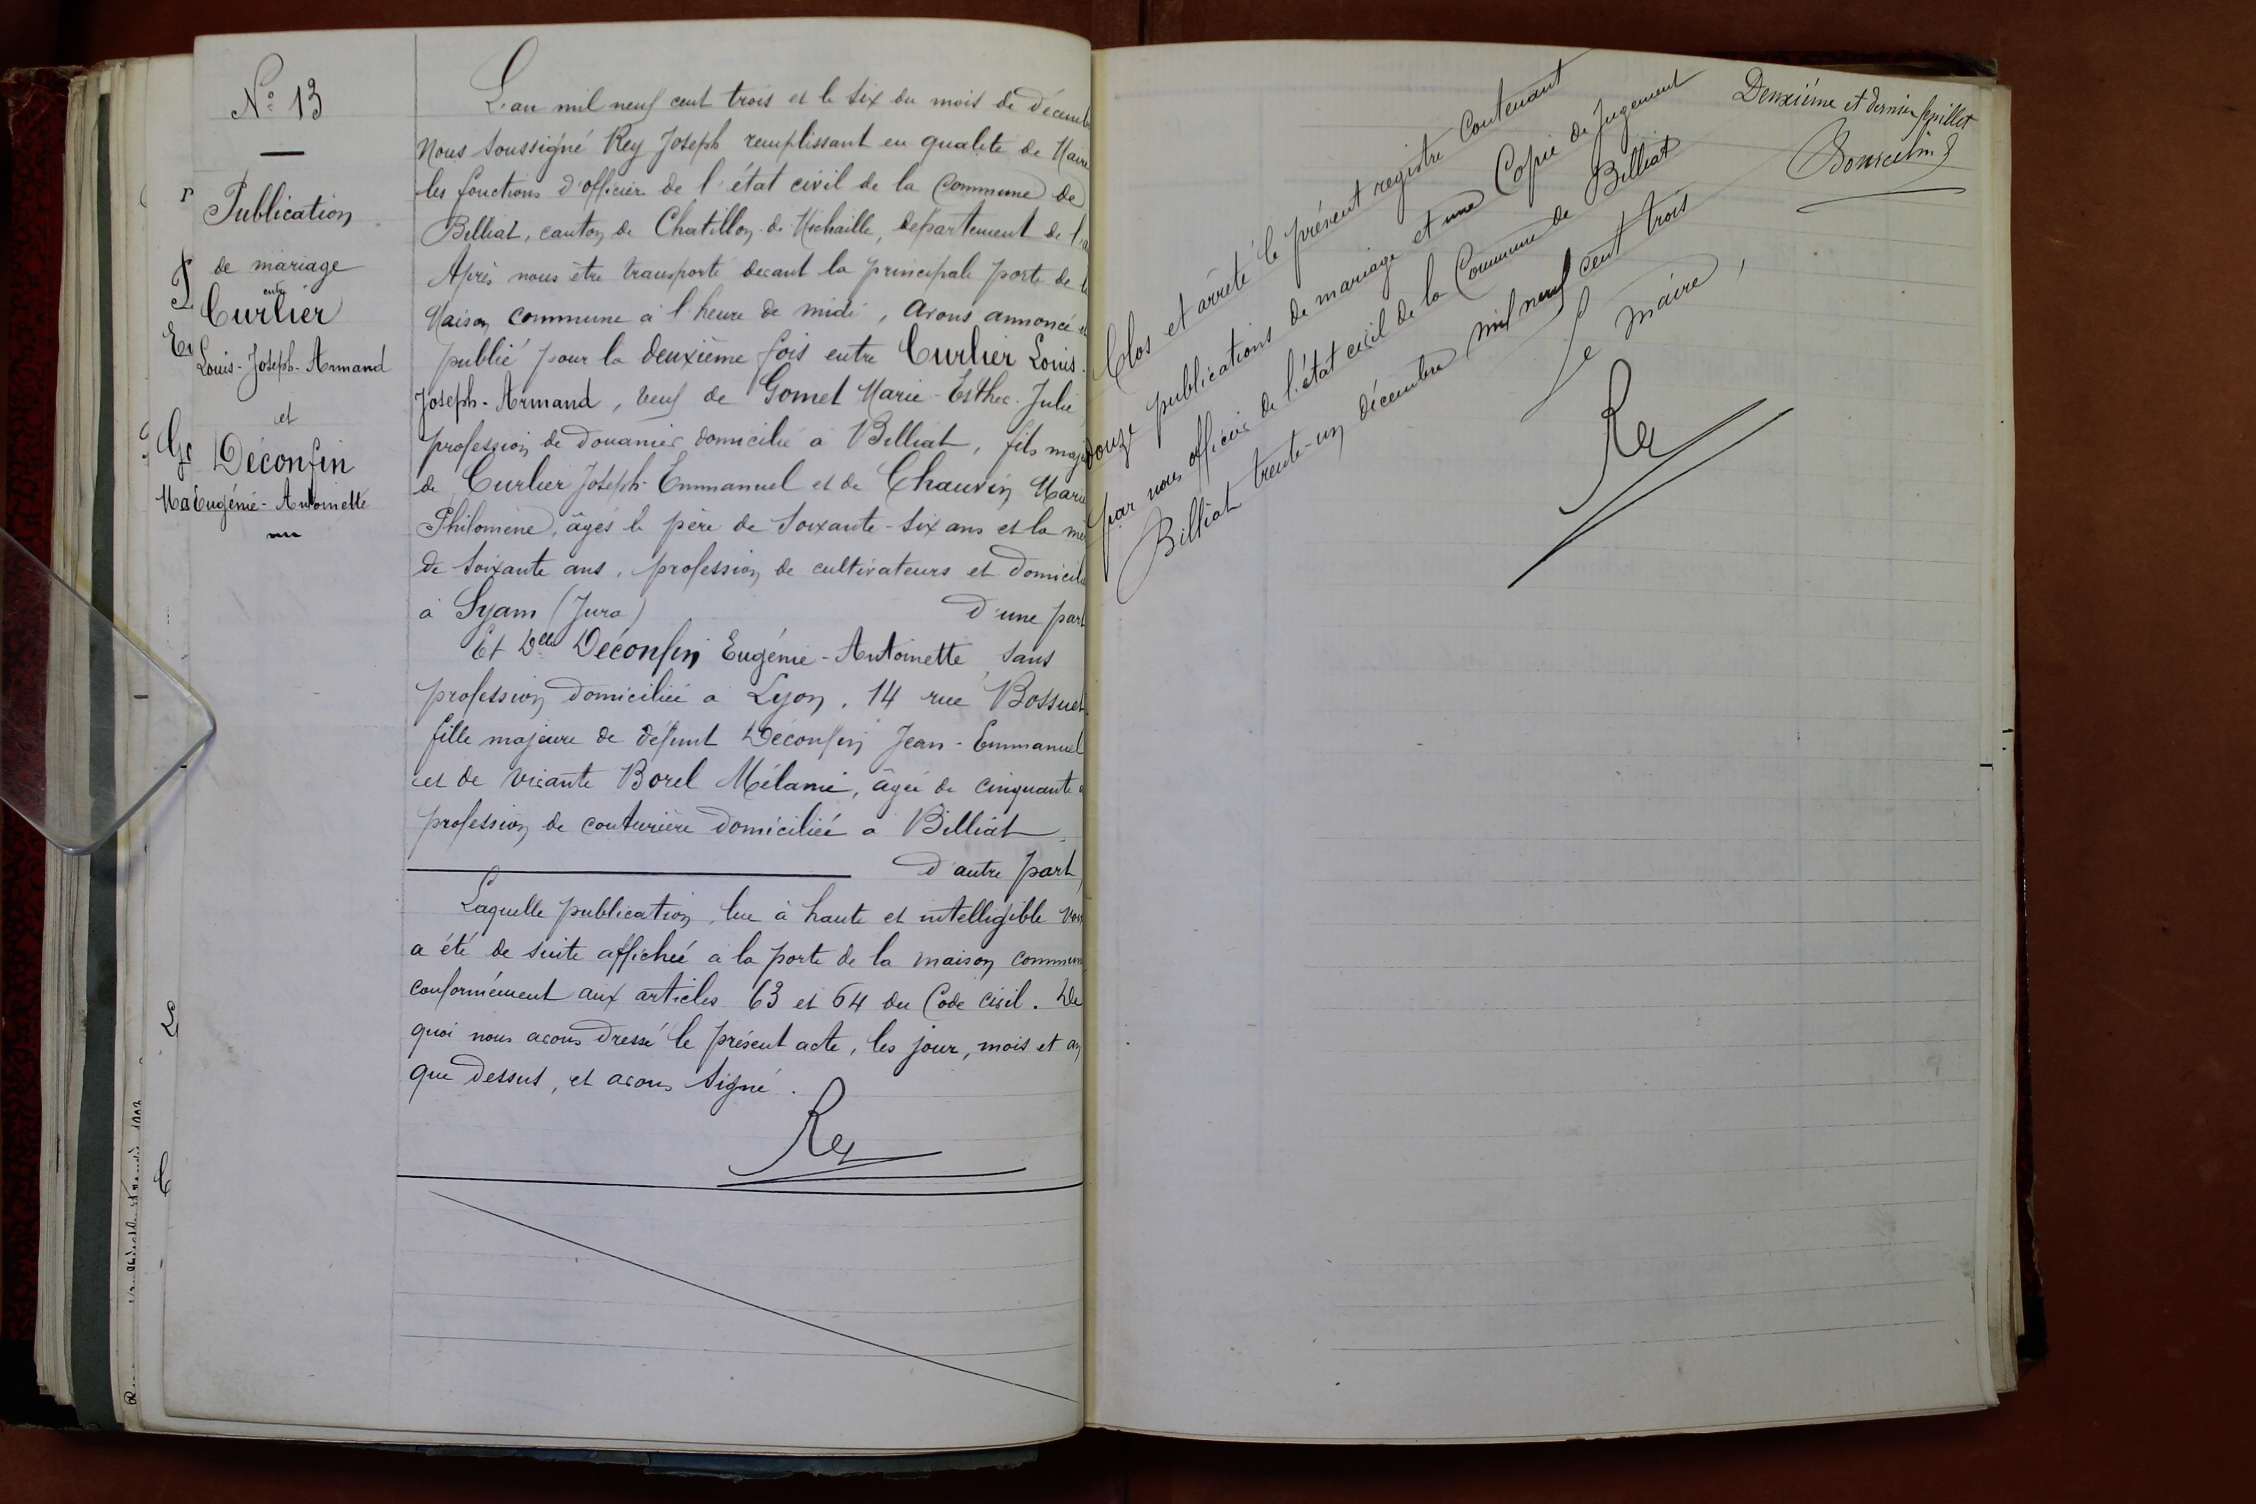 N° 13
Publication
de mariage
entre
Curlier
Louis-Joseph-Armand
et
Déconfin
Eugénie-Antoinette
L'an mil neuf cent trois et le six du mois de décemb
Nous soussigné Rey Joseph remplissant en qualité de Maire
les fonctions d'officier de l'état civil de la Commune de
Billiat, canton de Chatillon-de-Michaille, département de l'
Après nous être transporté devant la principale porte de
Maison commune à l'heure de midi, avons annoncé
publié pour la deuxième fois entre Curlier Louis-
Joseph-Armand, veuf de Gomet Marie-Esther-Julie
profession de douanier domicilié à Billiat, fils maj
de Curlier Joseph-Emmanuel et de Chauvin Marie
Philomène, âgés le père de soixante-six ans et la mè
de soixante ans, profession de cultivateurs et domicili
à Syam (Jura) d'une part
Et Delle Déconfin Eugénie-Antoinette, sans
profession domiciliée à Lyon, 14 rue Bossuet
fille majeure de défunt Déconfin Jean-Emmanuel
et de vivante Borel Mélanie, âgée de cinquante a
profession de couturière domiciliée à Billiat
d'autre part,
Laquelle publication, lue à haute et intelligible voix
a été de suite affichée à la porte de la maison commun
conformément aux articles 63 et 64 du Code civil. De
quoi nous avons dressé le présent acte, les jour, mois et an
que dessus, et avons signé.
Rey
Deuxième et dernier feuillet
Clos et arrêté le présent registre contenant
douze publications de mariage et une Copie de Jugement
par nous officier de l'état civil de la Commune de Billiat
Billiat trente-un décembre mil neuf cent trois
Le maire,
Rey